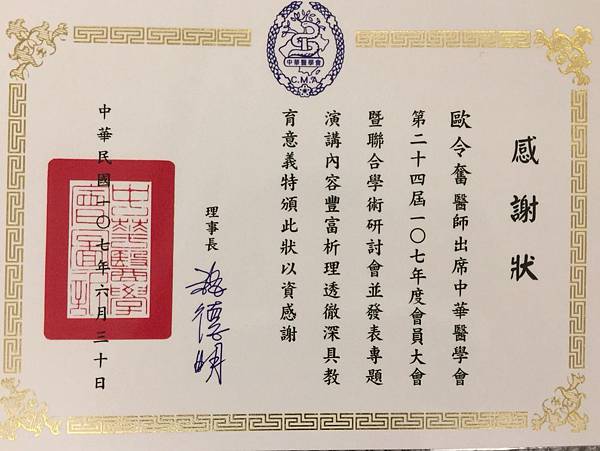 中華醫學會
C.M.A
感謝狀
歐令奮醫師出席中華醫學會
第二十四屆一〇七年度會員大會
暨聯合學術研討會並發表專題
演講內容豐富析理透徹深具教
育意義特頒此狀以資感謝
理事長
中華民國一〇七年六月三十日